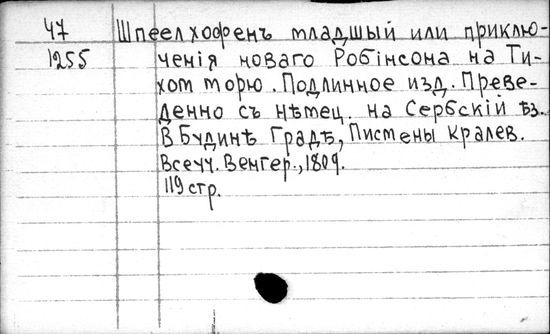 47 Шпеелхофенъ младшый или приклю-
1255 ченія новаго Робінсона на Ти-
хом морю. Подлинное изд. Преве-
денно съ нѣмец. на Сербскій ѣз.
В Будинѣ Градѣ, Писмены Кралев.
Всеуч. Венгер., 1809.
119 стр.